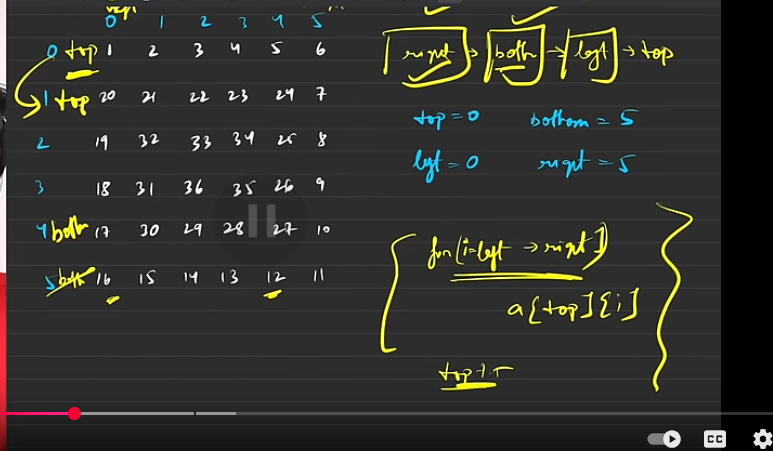 0 1 2 3 4 5
0 top 1 2 3 4 5 6
1 top 20 21 22 23 24 7
2 19 32 33 34 25 8
3 18 31 36 35 26 9
4 bottom 17 30 29 28 27 10
5 bottom 16 15 14 13 12 11
right → bottom → left → top
top = 0 bottom = 5
left = 0 right = 5
for(i=left → right)
a[top][i]
top++
CC